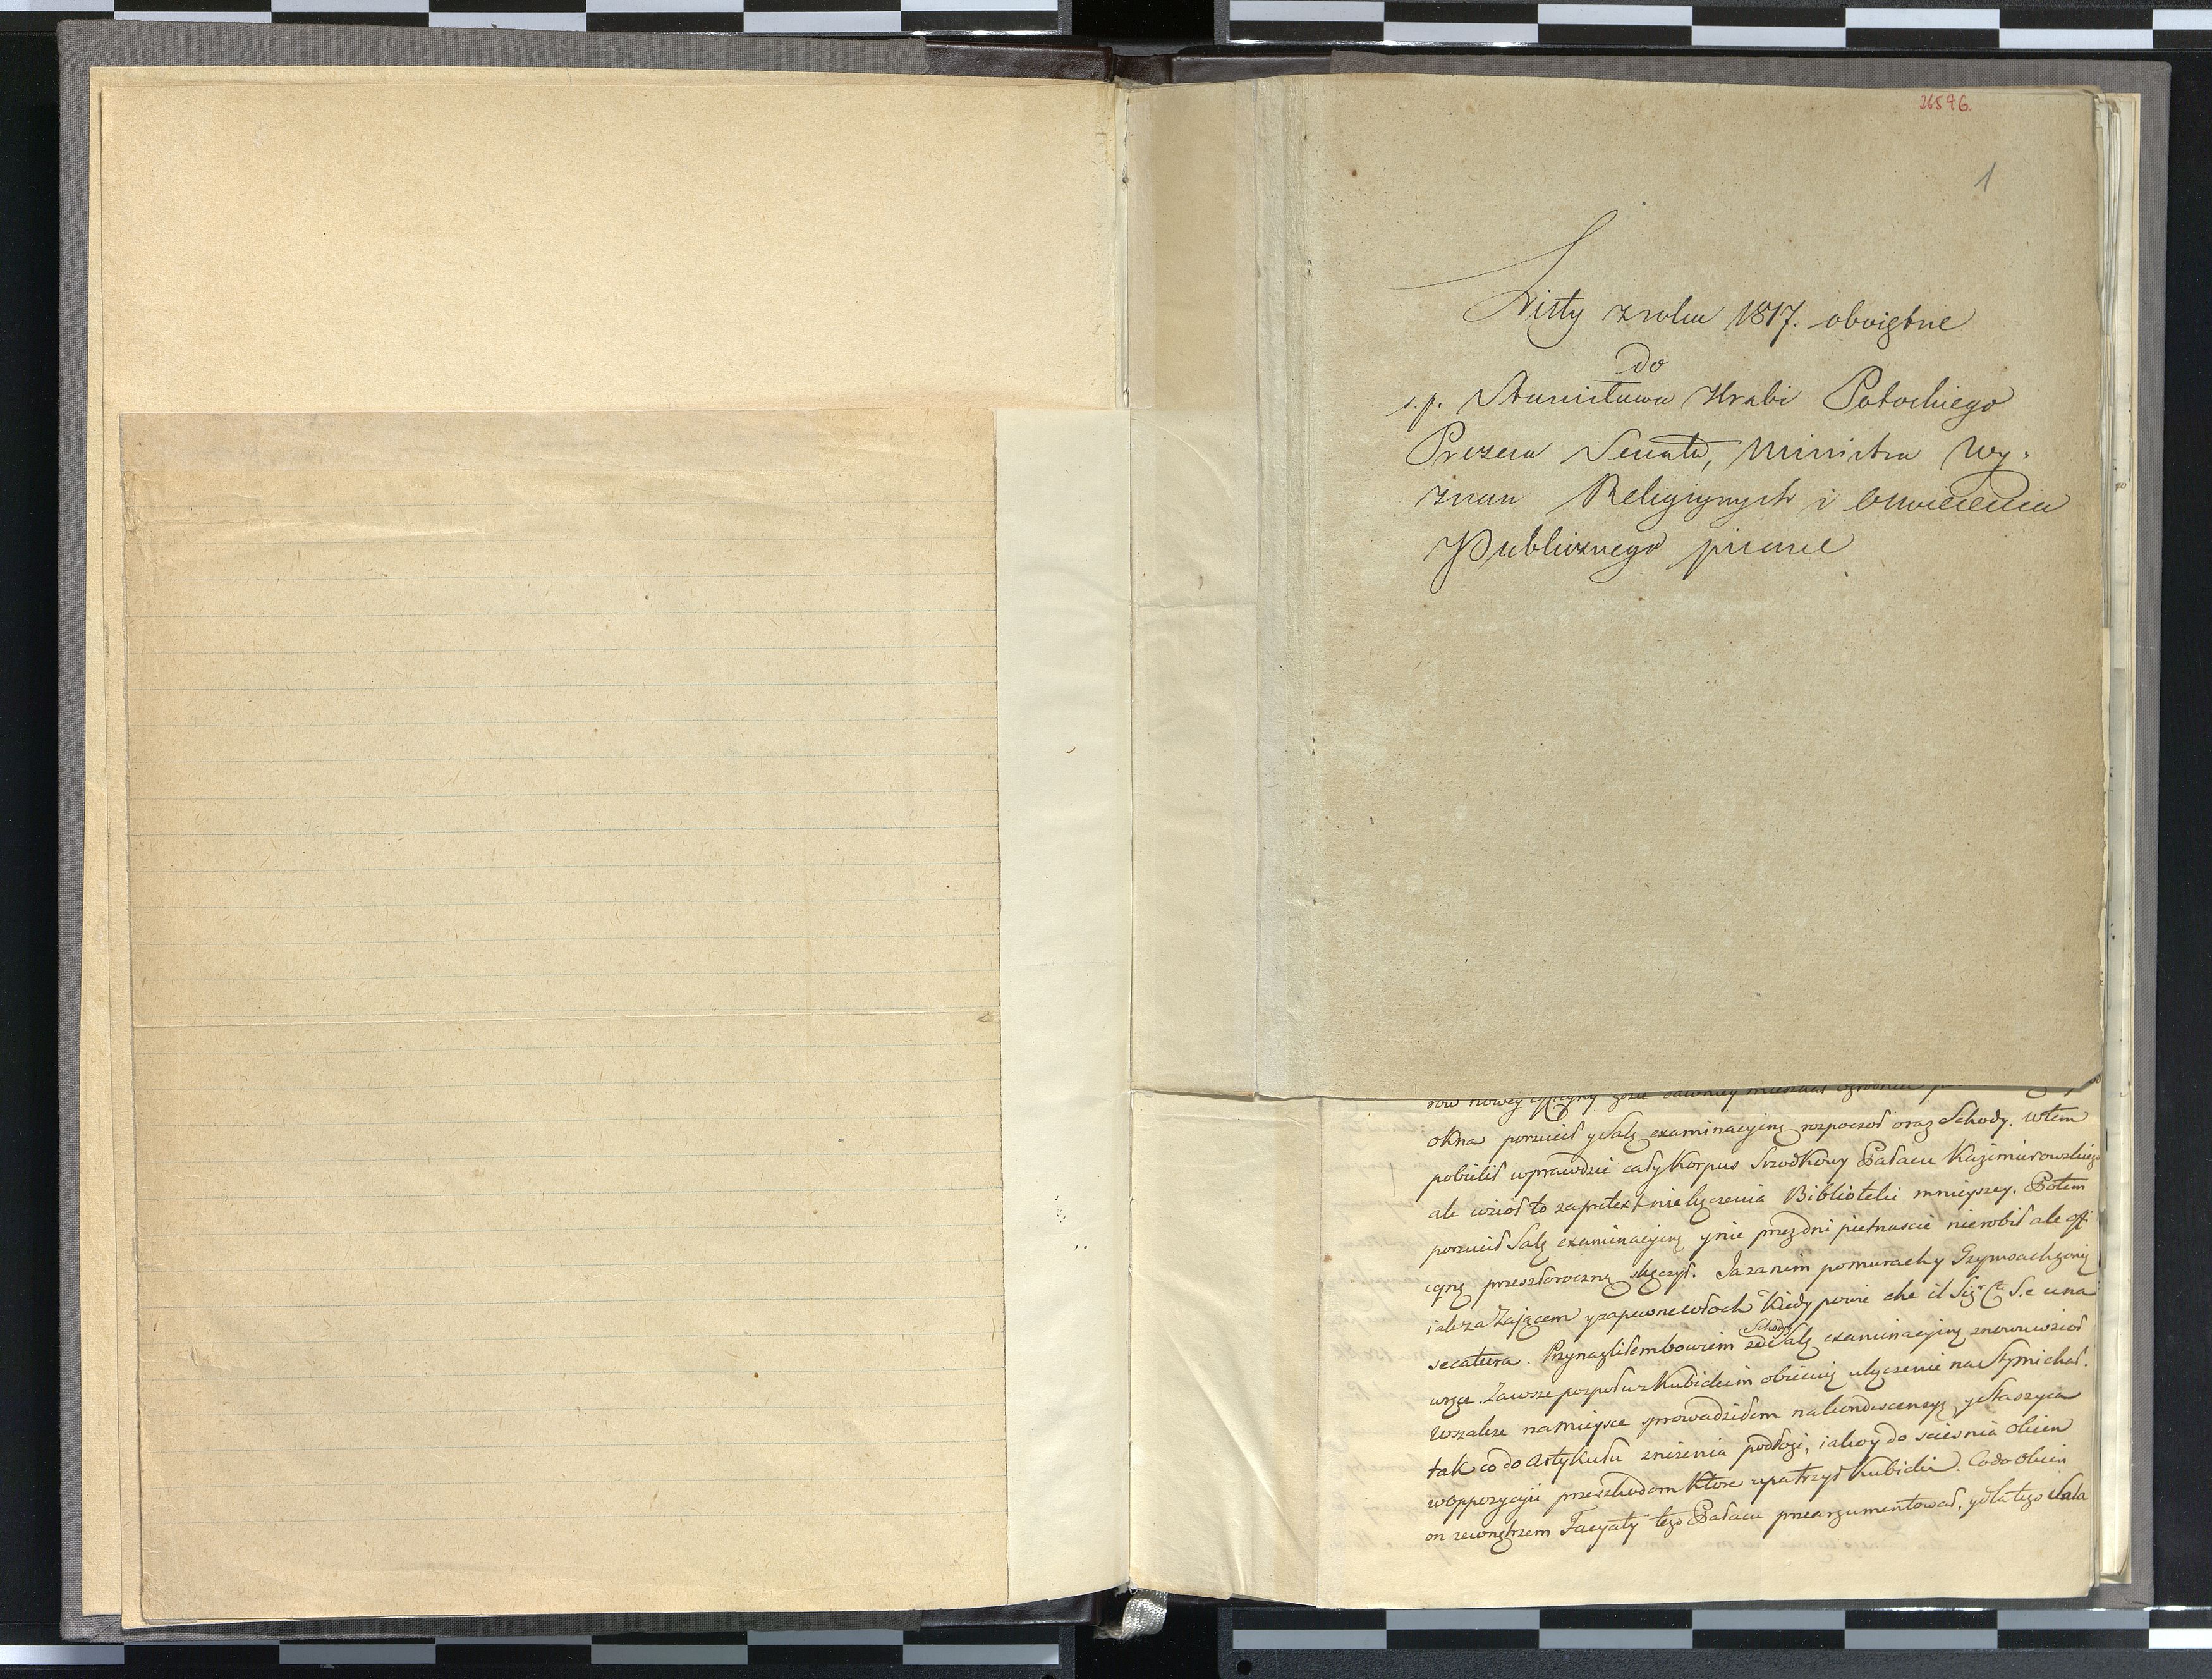 26596.
1
Listy z roku 1817. obojętne
do
s.p. Stanisława Hrabi Potockiego
Prezesa Senatu, Ministra Wy-
znan Religijnych i Oswiecenia
Publicznego pisane
okna porzucił y Salę examinacyiną rozpoczoł oraz Schody. Wtem
pobielił wprawdzie cały Korpus Srzodkowy Pałacu Kazimirowskiego
ale wzioł to za pretext nie kączenia Biblioteki mnieyszey. Potem
porzucił Salę examinacyiną y nie przez dni pietnascie nie robił ale offi
cynę przeszłoroczną skączył. Ja za nim po murach y Gzymsach gonię
iak za Zaiącem y zapewne Włoch Kiedy powie che il Sigr Cte S. e una
secatura. Przynagliłem bowiem Schody Salę examinacyiną znowu wzioł
Wszakże na mieysce sprowadziłem na kondescensyę y Staszyca
tak co do Artykułu znizenia podłogi, iako y do scieśnia okien
w oppozycyi przeszkodom Ktore upatrzył Kubicki. Co do Okien
on zewnętrzem Facyaty tego Pałacu przeargumentował, y dla tego Sala